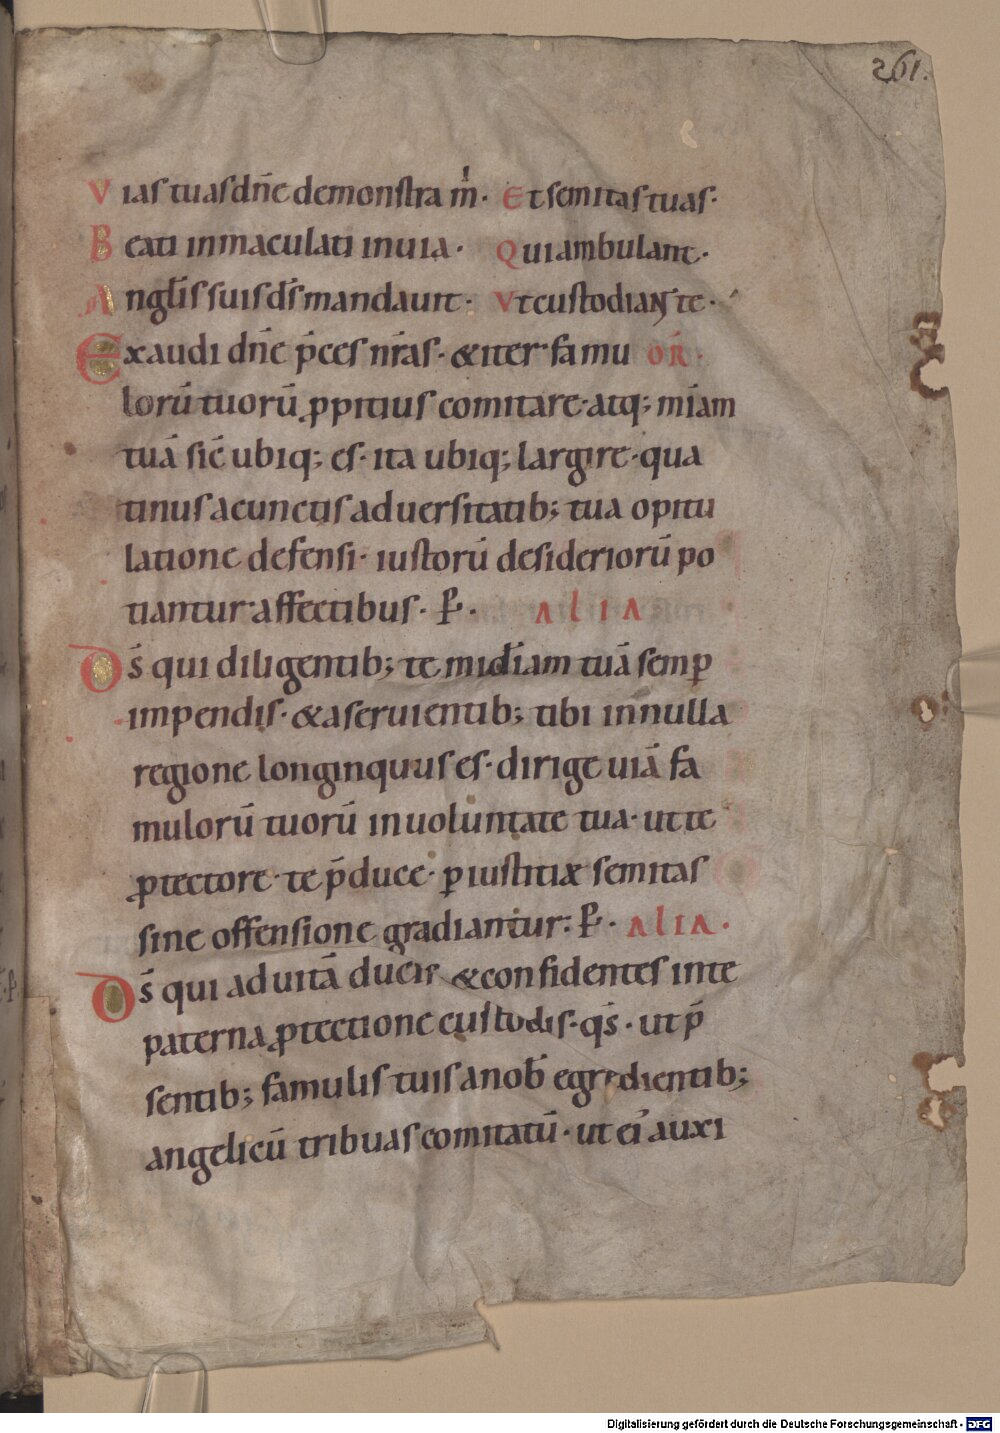 261.
Vias tuas dn̄e demonstra m̄· Et semitas tuas·
Beati inmaculati inuia· Qui ambulant·
Angl̄is suis d̄s mandauit· Vt custodiant te·
Exaudi dn̄e p̄ces nr̄as· & iter famu OR̄·
lorū tuorū ꝓpitius comitare· atq; mīam
tuā sic̄ ubiq; es· ita ubiq; largire· qua
tinus a cunctis aduersitatib; tua opitu
latione defensi· iustorū desideriorū po
tiantur affectibus· P̄· ALIA
D̄s qui diligentib; te mid̄iam tuā semꝑ
impendis· & a seruientib; tibi in nulla
regione longinquus es· dirige uiā fa
mulorū tuorū inuoluntate tua· ut te
ꝓtectore· te p̄duce· ꝑ iustitiæ semitas
sine offensione gradiantur: P̄· ALIA·
D̄s qui ad uitā ducis & confidentes in te
paterna ꝓtectione custodis· qs̄· ut p̄
sentib; famulis tuis a nob̄ egredientib;
angelicū tribuas comitatū· ut ei' auxi
Digitalisierung gefördert durch die Deutsche Forschungsgemeinschaft - DFG